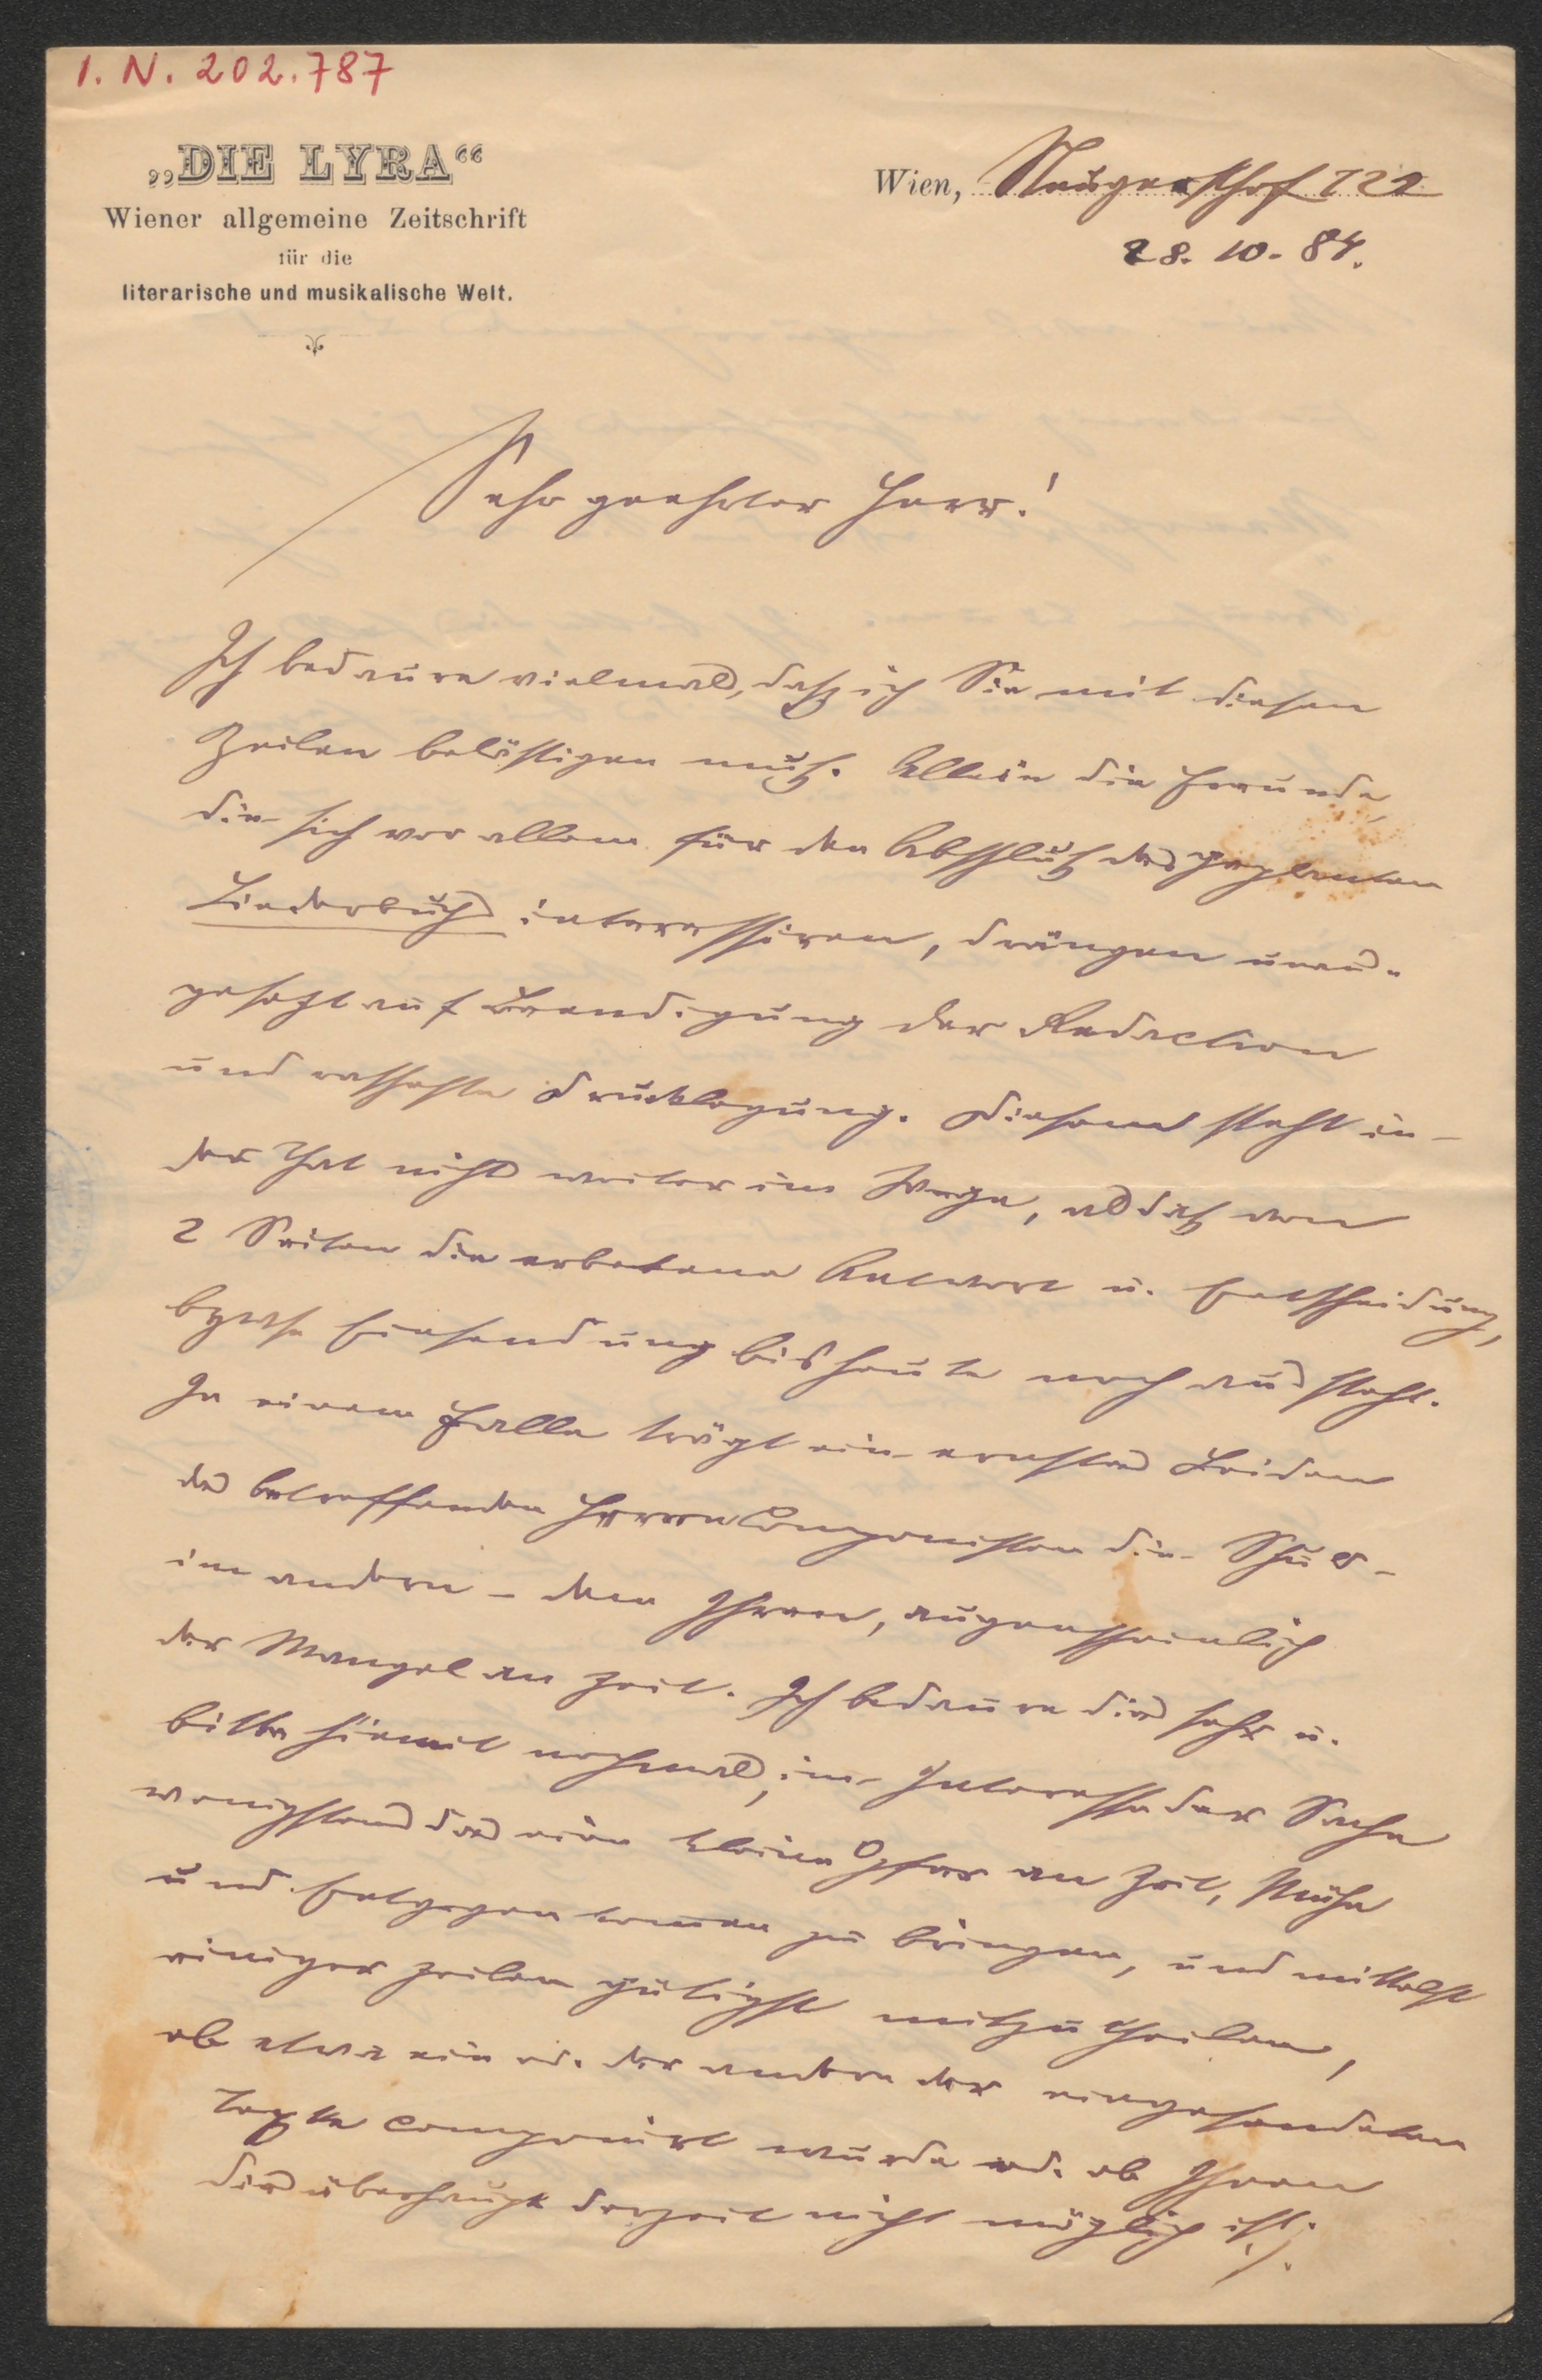 I. N. 202.787
„DIE LYRA“
Wiener allgemeine Zeitschrift
für die
literarische und musikalische Welt.
Wien, Neugersthof 122
28. 10. 84.
Sehr geehrter Herr!
Ich bedaure vielmals, daß ich Sie mit diesen
Zeilen belästigen muß. Allein die Freunde,
die sich vor allem für den Abschluß des geplanten
Liederbuchs interessiren, drängen unaus-
gesetzt auf Beendigung der Redaction
und Drucklegung. Diesem steht in
der That nichts weiter im Wege, als daß von
2 Seiten die erbetene Antwort u. Entscheidung,
bzwse Einsendung bis heute noch aussteht.
In einem Falle trägt ein ernstes Leiden
des betreffenden Herrn Componisten die Schuld –
im andern – dem Ihren, augenscheinlich
der Mangel an Zeit. Ich bedaure dies sehr u.
bitte hiemit nochmals, im Interesse der Sache
wenigstens das eine kleine Opfer an Zeit, Mühe
und Entgegenkommen zu bringen, und mittelst
einiger Zeilen gütigst mitzutheilen,
ob etwa ein od. der andere der eingesendeten
Texte componirt wurde od. ob Ihnen
dies überhaupt derzeit nicht möglich ist;